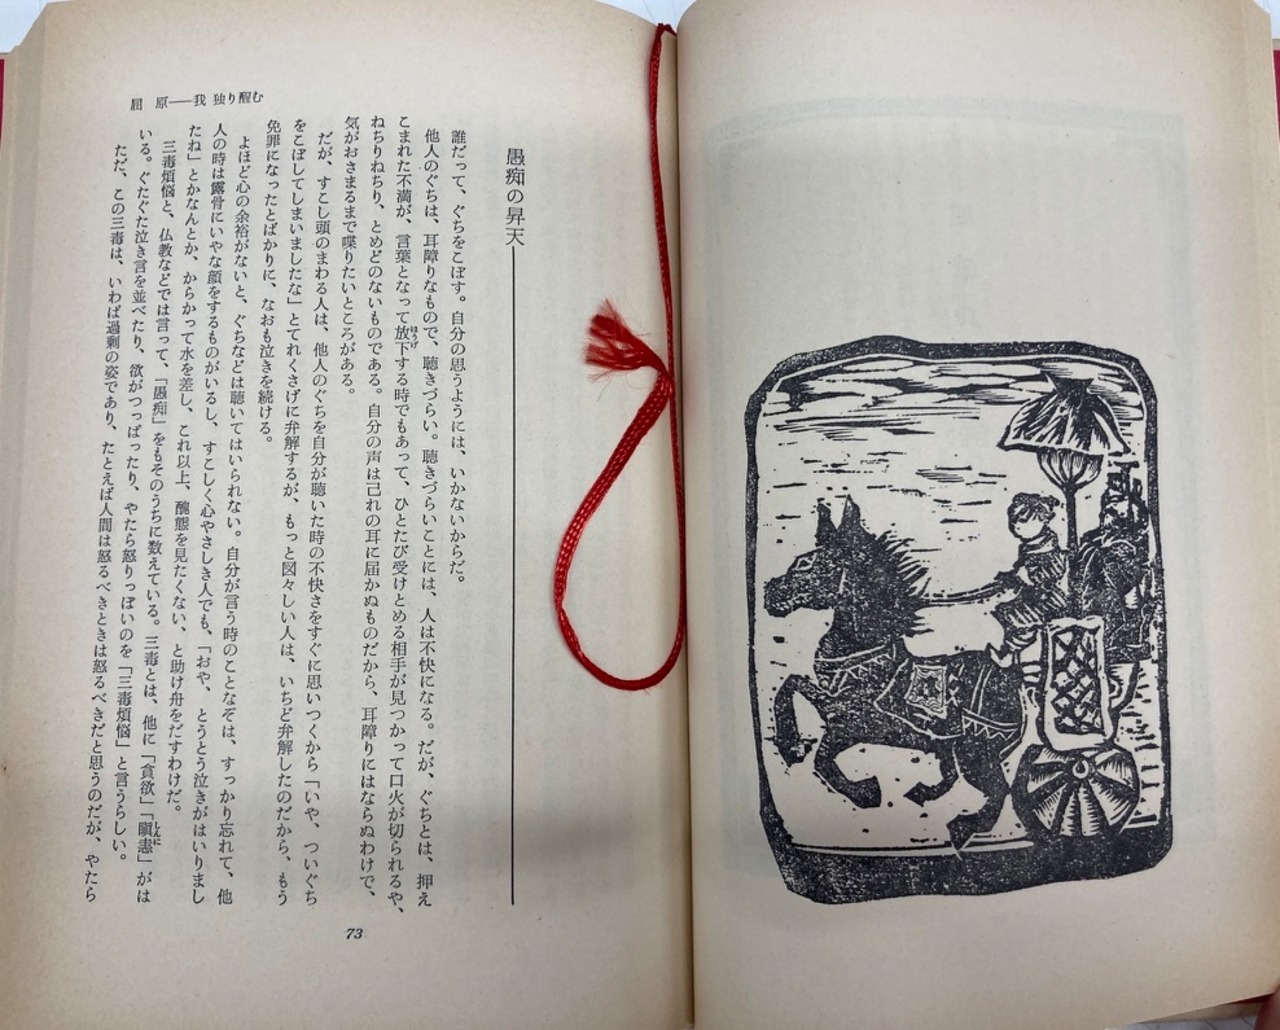 屈 原――我 独り醒む
愚痴の昇天
誰だって、ぐちをこぼす。自分の思うようには、いかないからだ。
他人のぐちは、耳障りなもので、聴きづらい。聴きづらいことには、人は不快になる。だが、ぐちとは、押え
こまれた不満が、言葉となって放下する時でもあって、ひとたび受けとめる相手が見つかって口火が切られるや、
ほうげ
ねちりねちり、とめどのないものである。自分の声は己れの耳に届かぬものだから、耳障りにはならぬわけで、
気がおさまるまで喋りたいところがある。
だが、すこし頭のまわる人は、他人のぐちを自分が聴いた時の不快さをすぐに思いつくから「いや、ついぐち
をこぼしてしまいましたな」とてれくさげに弁解するが、もっと図々しい人は、いちど弁解したのだから、もう
免罪になったとばかりに、なおも泣きを続ける。
よほど心の余裕がないと、ぐちなどは聴いてはいられない。自分が言う時のことなぞは、すっかり忘れて、他
人の時は露骨にいやな顔をするものがいるし、すこしく心やさしき人でも、「おや、とうとう泣きがはいりまし
たね」とかなんとか、からかって水を差し、これ以上、醜態を見たくない、と助け舟をだすわけだ。
三毒煩悩と、仏教などでは言って、「愚痴」をもそのうちに数えている。三毒とは、他に「貪欲」「瞋恚」がは
しんに
いる。ぐたぐた泣き言を並べたり、欲がつっぱったり、やたら怒りっぽいのを「三毒煩悩」と言うらしい。
ただ、この三毒は、いわば過剰の姿であり、たとえば人間は怒るべきときは怒るべきだと思うのだが、やたら
73